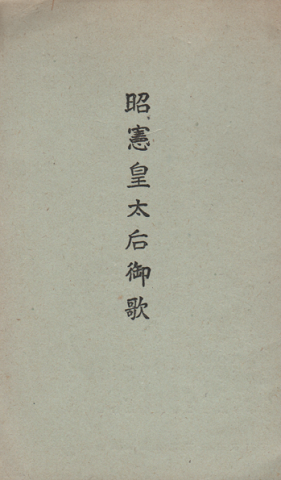 昭憲皇太后御歌